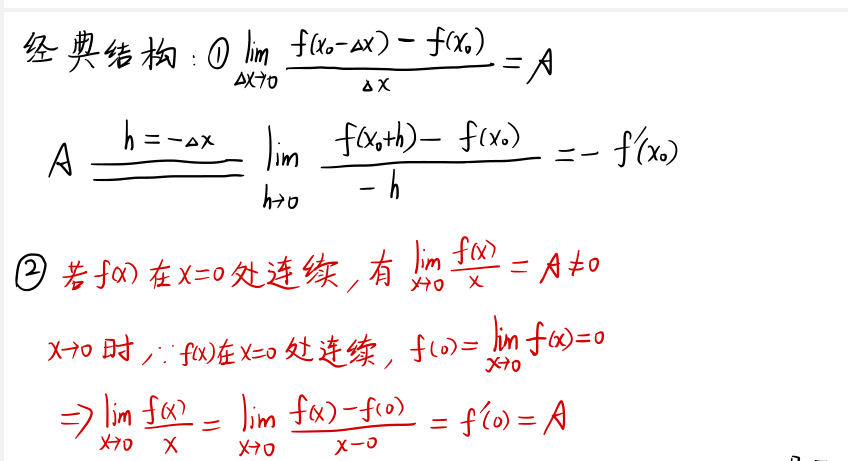 经典结构：① lim_{Δx→0} \frac{f(x₀-Δx) - f(x₀)}{Δx} = A
A \xlongequal{h=-Δx} lim_{h→0} \frac{f(x₀+h) - f(x₀)}{-h} = -f′(x₀)
② 若f(x)在x=0处连续，有 lim_{x→0} \frac{f(x)}{x} = A≠0
x→0时，∵f(x)在x=0处连续，f(0)=lim_{x→0} f(x)=0
⇒ lim_{x→0} \frac{f(x)}{x} = lim_{x→0} \frac{f(x)-f(0)}{x-0} = f′(0) = A